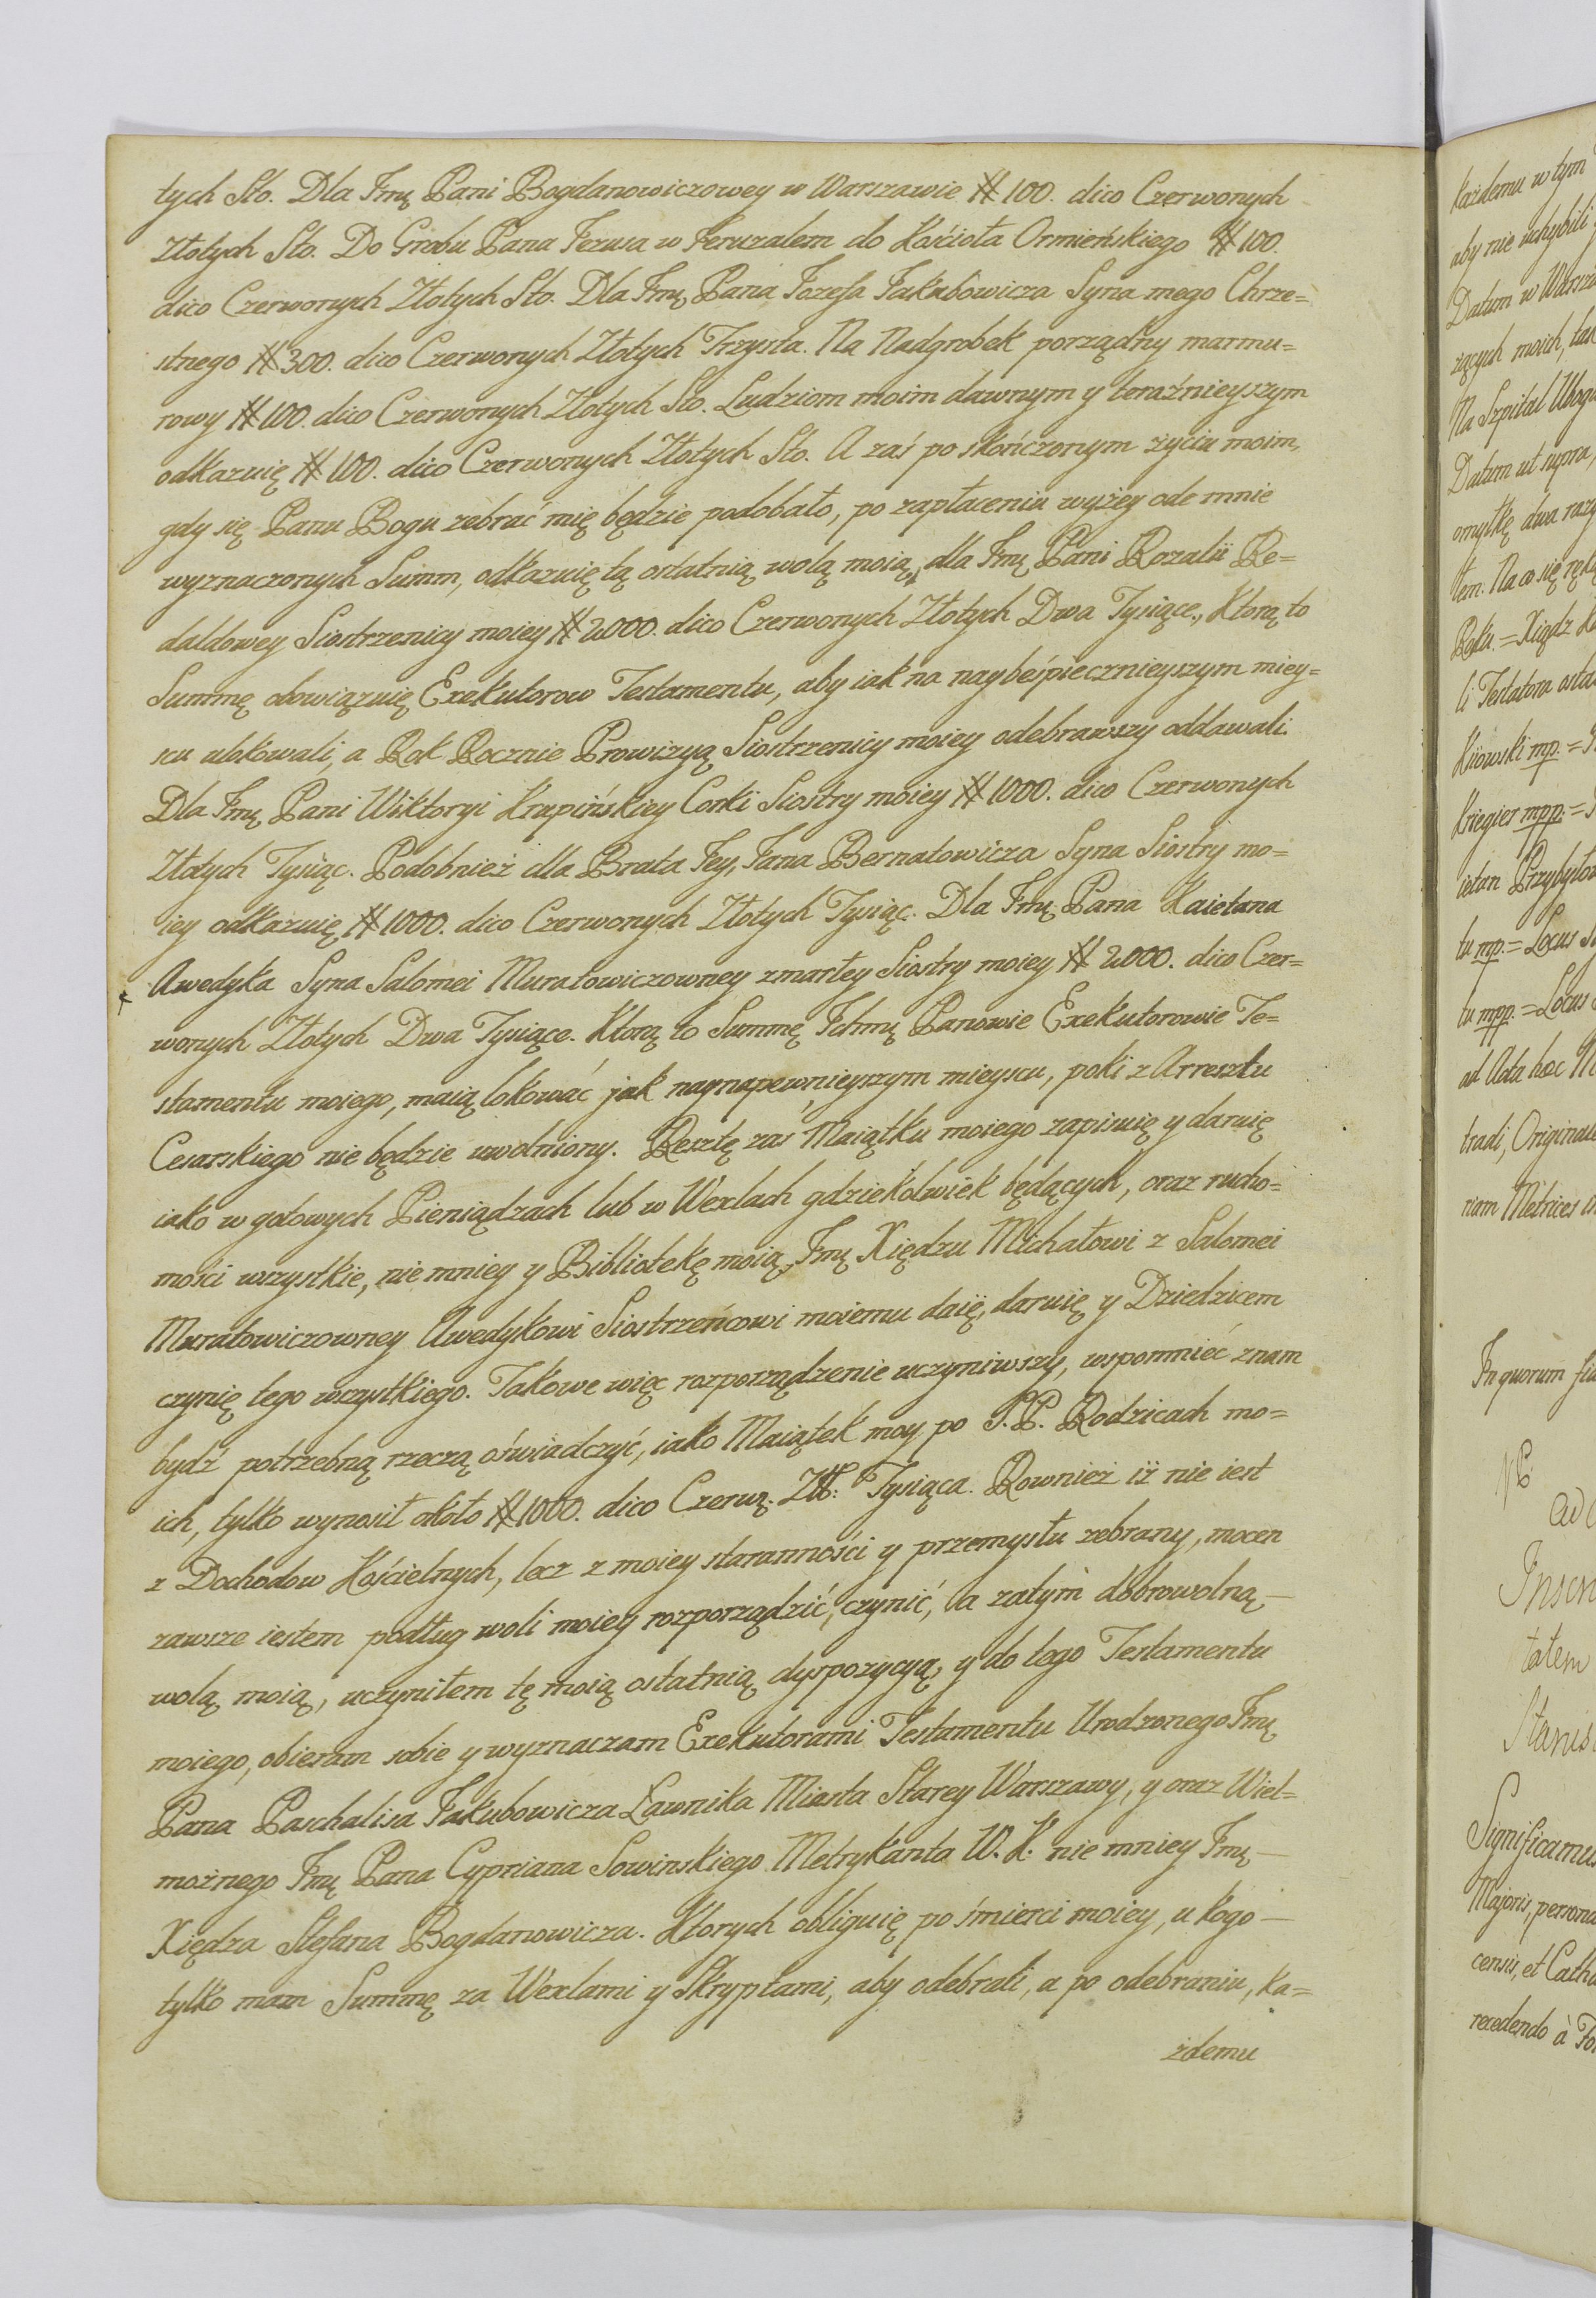 tych Sto. Dla Jmę Pani Bogdanowiczowey w Warszawie # 100. dico Czerwonych
Złotych Sto. Do Grobu Pana Jezusa w Jeruzalem do Kościoła Ormieńskiego # 100.
dico Czerwonych Złotych Sto. Dla Jmę Pana Jozefa Jakubowicza Syna mego Chrze=
stnego # 300. dico Czerwonych Złotych Trzysta. Na Nadgrobek porządny marmu=
rowy # 100. dico Czerwonych Złotych Sto. Ludziom moim dawnym y teraźnieyszym
odkazuię # 100. dico Czerwonych Złotych Sto. A zaś po skończonym życiu moim,
gdy się Panu Bogu zebrać mię będzie podobało, po zapłaceniu wyżey ode mnie
wyznaczonych Summ, odkazuię tą ostatnią wolą moią, dla Jmę Pani Rozalii Re=
daldowey Siostrzenicy moiey # 2000. dico Czerwonych Złotych Dwa Tysiące., Ktorą to
Summę obowiązuię Exekutorow Testamentu, aby iak na naybeśpiecznieyszym miey=
scu ulokowali, a Rok Rocznie Prowizyą Siostrzenicy moiey odebrawszy oddawali.
Dla Jmę Pani Wiktoryi Krapińskiey Corki Siostry moiey # 1000. dico Czerwonych
Złotych Tysiąc. Podobnież dla Brata Jey, Jana Bernatowicza Syna Siostry mo=
iey odkazuię # 1000. dico Czerwonych Złotych Tysiąc. Dla Jmę Pana Kaietana
Awedyka Syna Salomei Muratowiczowney zmarłey Siostry moiey # 2000. dico Czer=
wonych Złotych Dwa Tysiące. Ktorą to Summę Jchmę Panowie Exekutorowie Te=
stamentu moiego, maią lokować jak naynapewnieyszym mieyscu, poki z Arresztu
Cesarskiego nie będzie uwolniony. Resztę zaś Maiątku moiego zapisuię y daruię
iako w gotowych Pieniądzach lub w Wexlach gdziekolwiek będących, oraz rucho=
mości wszystkie, nie mniey y Bibliotekę moią, Jmę Xiędzu Michałowi z Salomei
Muratowiczowney Awedykowi Siostrzeńcowi moiemu daię, daruię y Dziedzicem
czynię tego wszystkiego. Takowe więc rozporządzenie uczyniwszy, wspomnieć znam
bydź potrzebną rzeczą oświadczyć, iako Maiątek moy po S.P. Rodzicach mo=
ich, tylko wynosił około # 1000. dico Czerwę. Złł: Tysiąca. Rownież iż nie iest
z Dochodow Kościelnych, lecz z moiey staranności y przemysłu zebrany, mocen
zawsze iestem podług woli moiey rozporządzić, czynić, a zatym dobrowolną —
wolą moią, uczyniłem tę moią ostatnią dyspozycyą, y do tego Testamentu
moiego, obieram sobie y wyznaczam Exekutorami Testamentu Urodzonego Jmę
Pana Paschalisa Jakubowicza Ławnika Miasta Starey Warszawy, y oraz Wiel=
możnego Jmę Pana Cypriana Sowinskiego Metrykanta W. K. nie mniey Jmę —
Xiędza Stefana Bogdanowicza. Ktorych obliguię po śmierci moiey, u kogo —
tylko mam Summę za Wexlami y Skryptami, aby odebrali, a po odebraniu, ka=
żdemu
każdemu w tym
aby nie uchybili
Datum w
żących moich, tak
Na Szpital
Datum ut supra,
omyłkę dwa razy
tem. Na co się
Roku. = Xiądz
li Testatora
Kiiowski mp. =
Kriegier mpp. =
ietan
tu mp. = Locus
tu mpp. = Locus
ad Acta hæc
tradi,
riam Metrices
In quorum
Ad
tatem
Significamus
Majoris,
censis, et
recedendo à